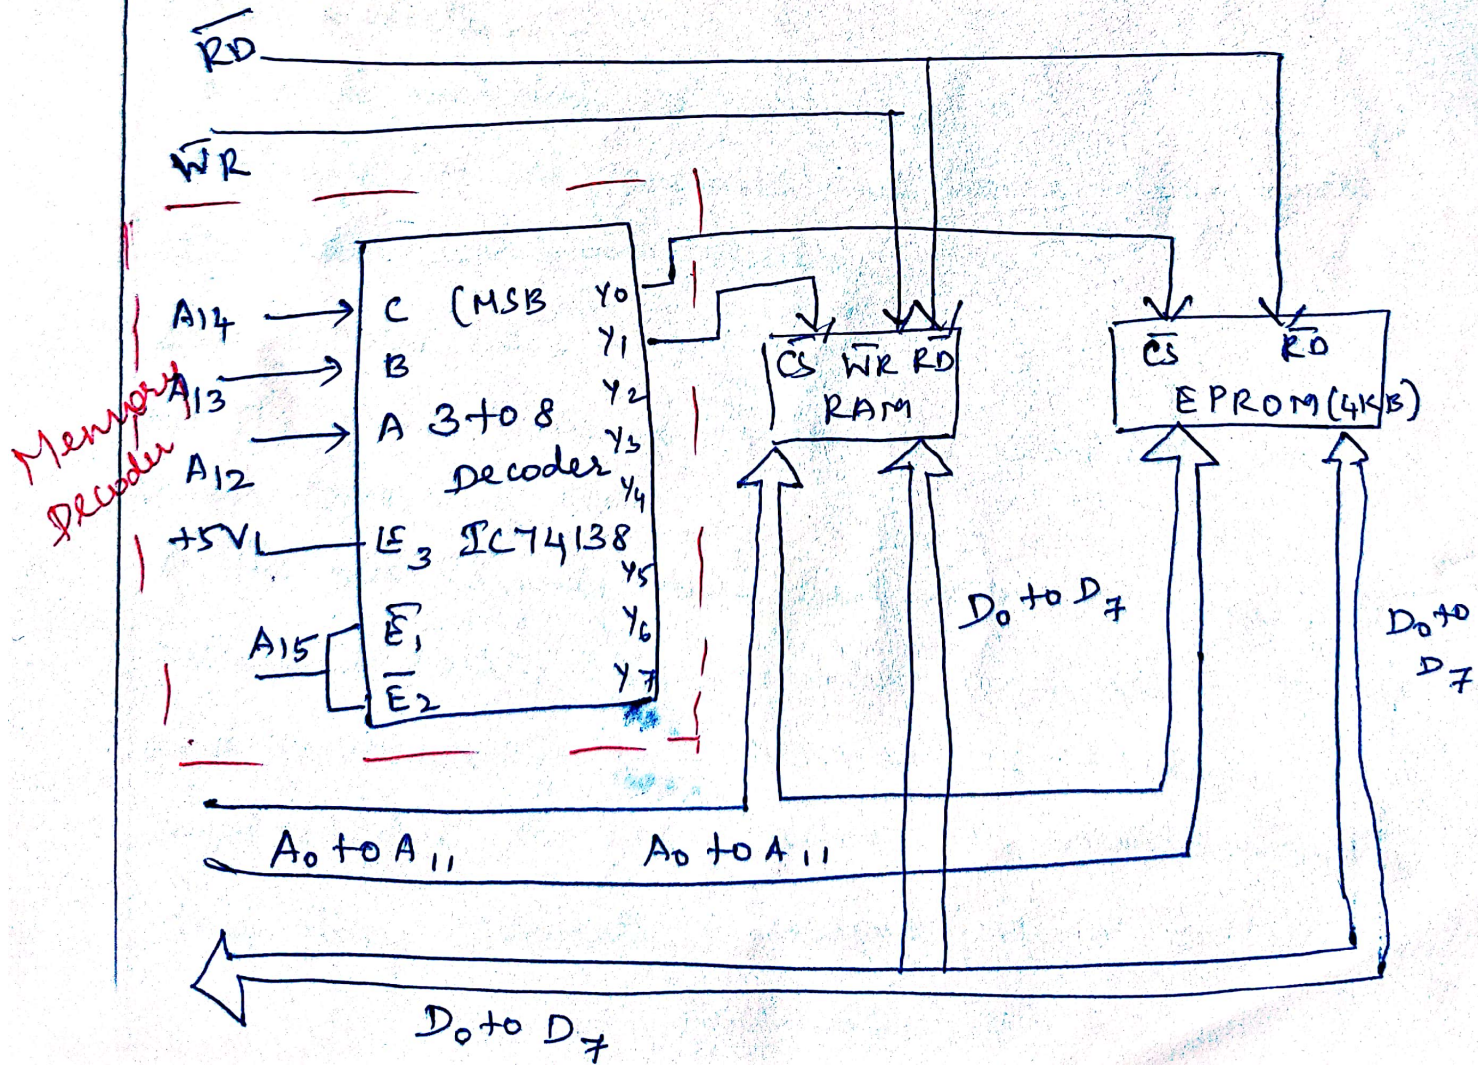 R̅D̅
W̅R
A14
A13
A12
+5V
A15
Memory
Decoder
C (MSB
B
A 3 to 8
Decoder
E3 IC74138
E̅1
E̅2
Y0
Y1
Y2
Y3
Y4
Y5
Y6
Y7
C̅S̅ W̅R̅ R̅D̅
RAM
C̅S̅ R̅D̅
EPROM (4KB)
D0 to D7
D0 to
D7
A0 to A11
A0 to A11
D0 to D7